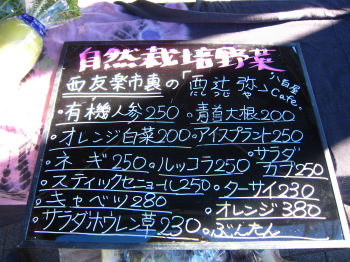 自然栽培野菜
西友楽市裏の「西辻弥」八百屋Cafe。
にしつじや
・有機人参250 ・青首大根200
・オレンジ白菜200 ・アイスプラント250
・ネギ250 ・ルッコラ250 ・サラダカブ250
・スティックセニョール250 ・ターサイ230
・キャベツ280 ・オレンジ380
・サラダホウレン草230 ・ぶんたん